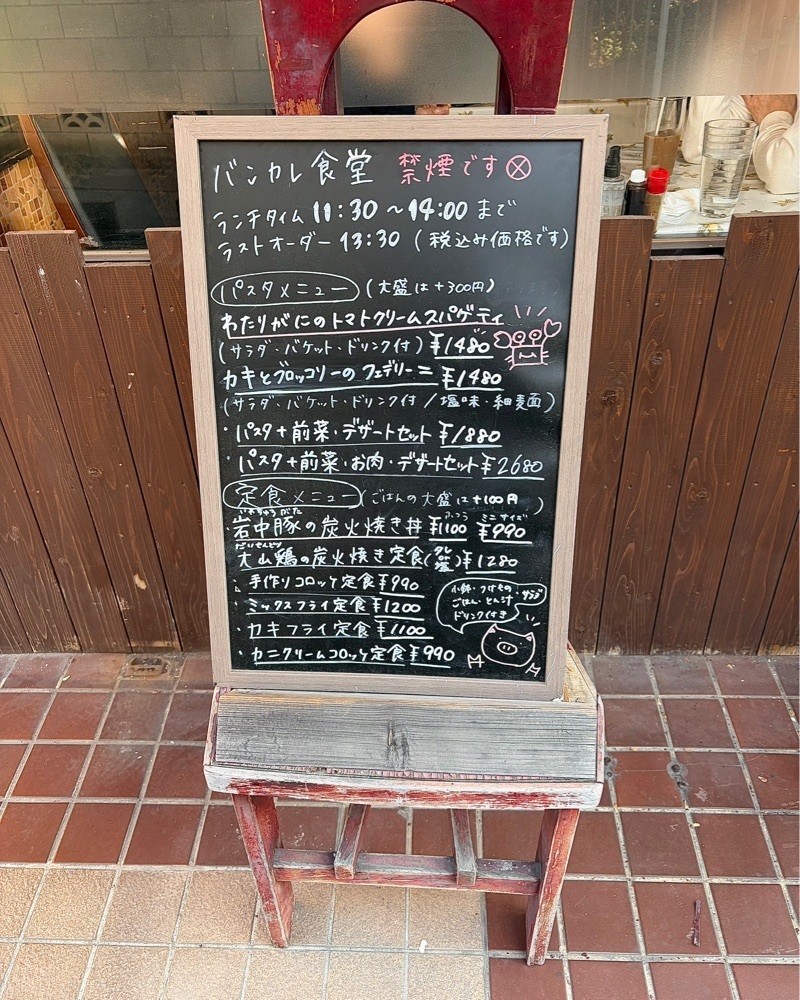 バンカレ食堂 禁煙です
ランチタイム 11:30 〜 14:00 まで
ラストオーダー 13:30 (税込み価格です)
パスタメニュー (大盛は+300円)
わたりがにのトマトクリームスパゲティ
(サラダ・バケット・ドリンク付) ¥1480
カキとブロッコリーの フェデリーニ ¥1480
(サラダ・バケット・ドリンク付 / 塩味・細麺)
・パスタ+前菜・デザートセット ¥1880
・パスタ+前菜・お肉・デザートセット ¥2680
定食メニュー (ごはんの大盛は+100円)
いわちゅうぶた ふつう ミニサイズ
岩中豚の炭火焼き丼 ¥1100 ¥990
だいせんどり
大山鶏の炭火焼き定食(タレ 塩) ¥1280
・手作りコロッケ定食 ¥990
・ミックスフライ定食 ¥1200
・カキフライ定食 ¥1100
・カニクリームコロッケ定食 ¥990
小鉢・つけもの・サラダ
ごはん・とん汁
ドリンク付き